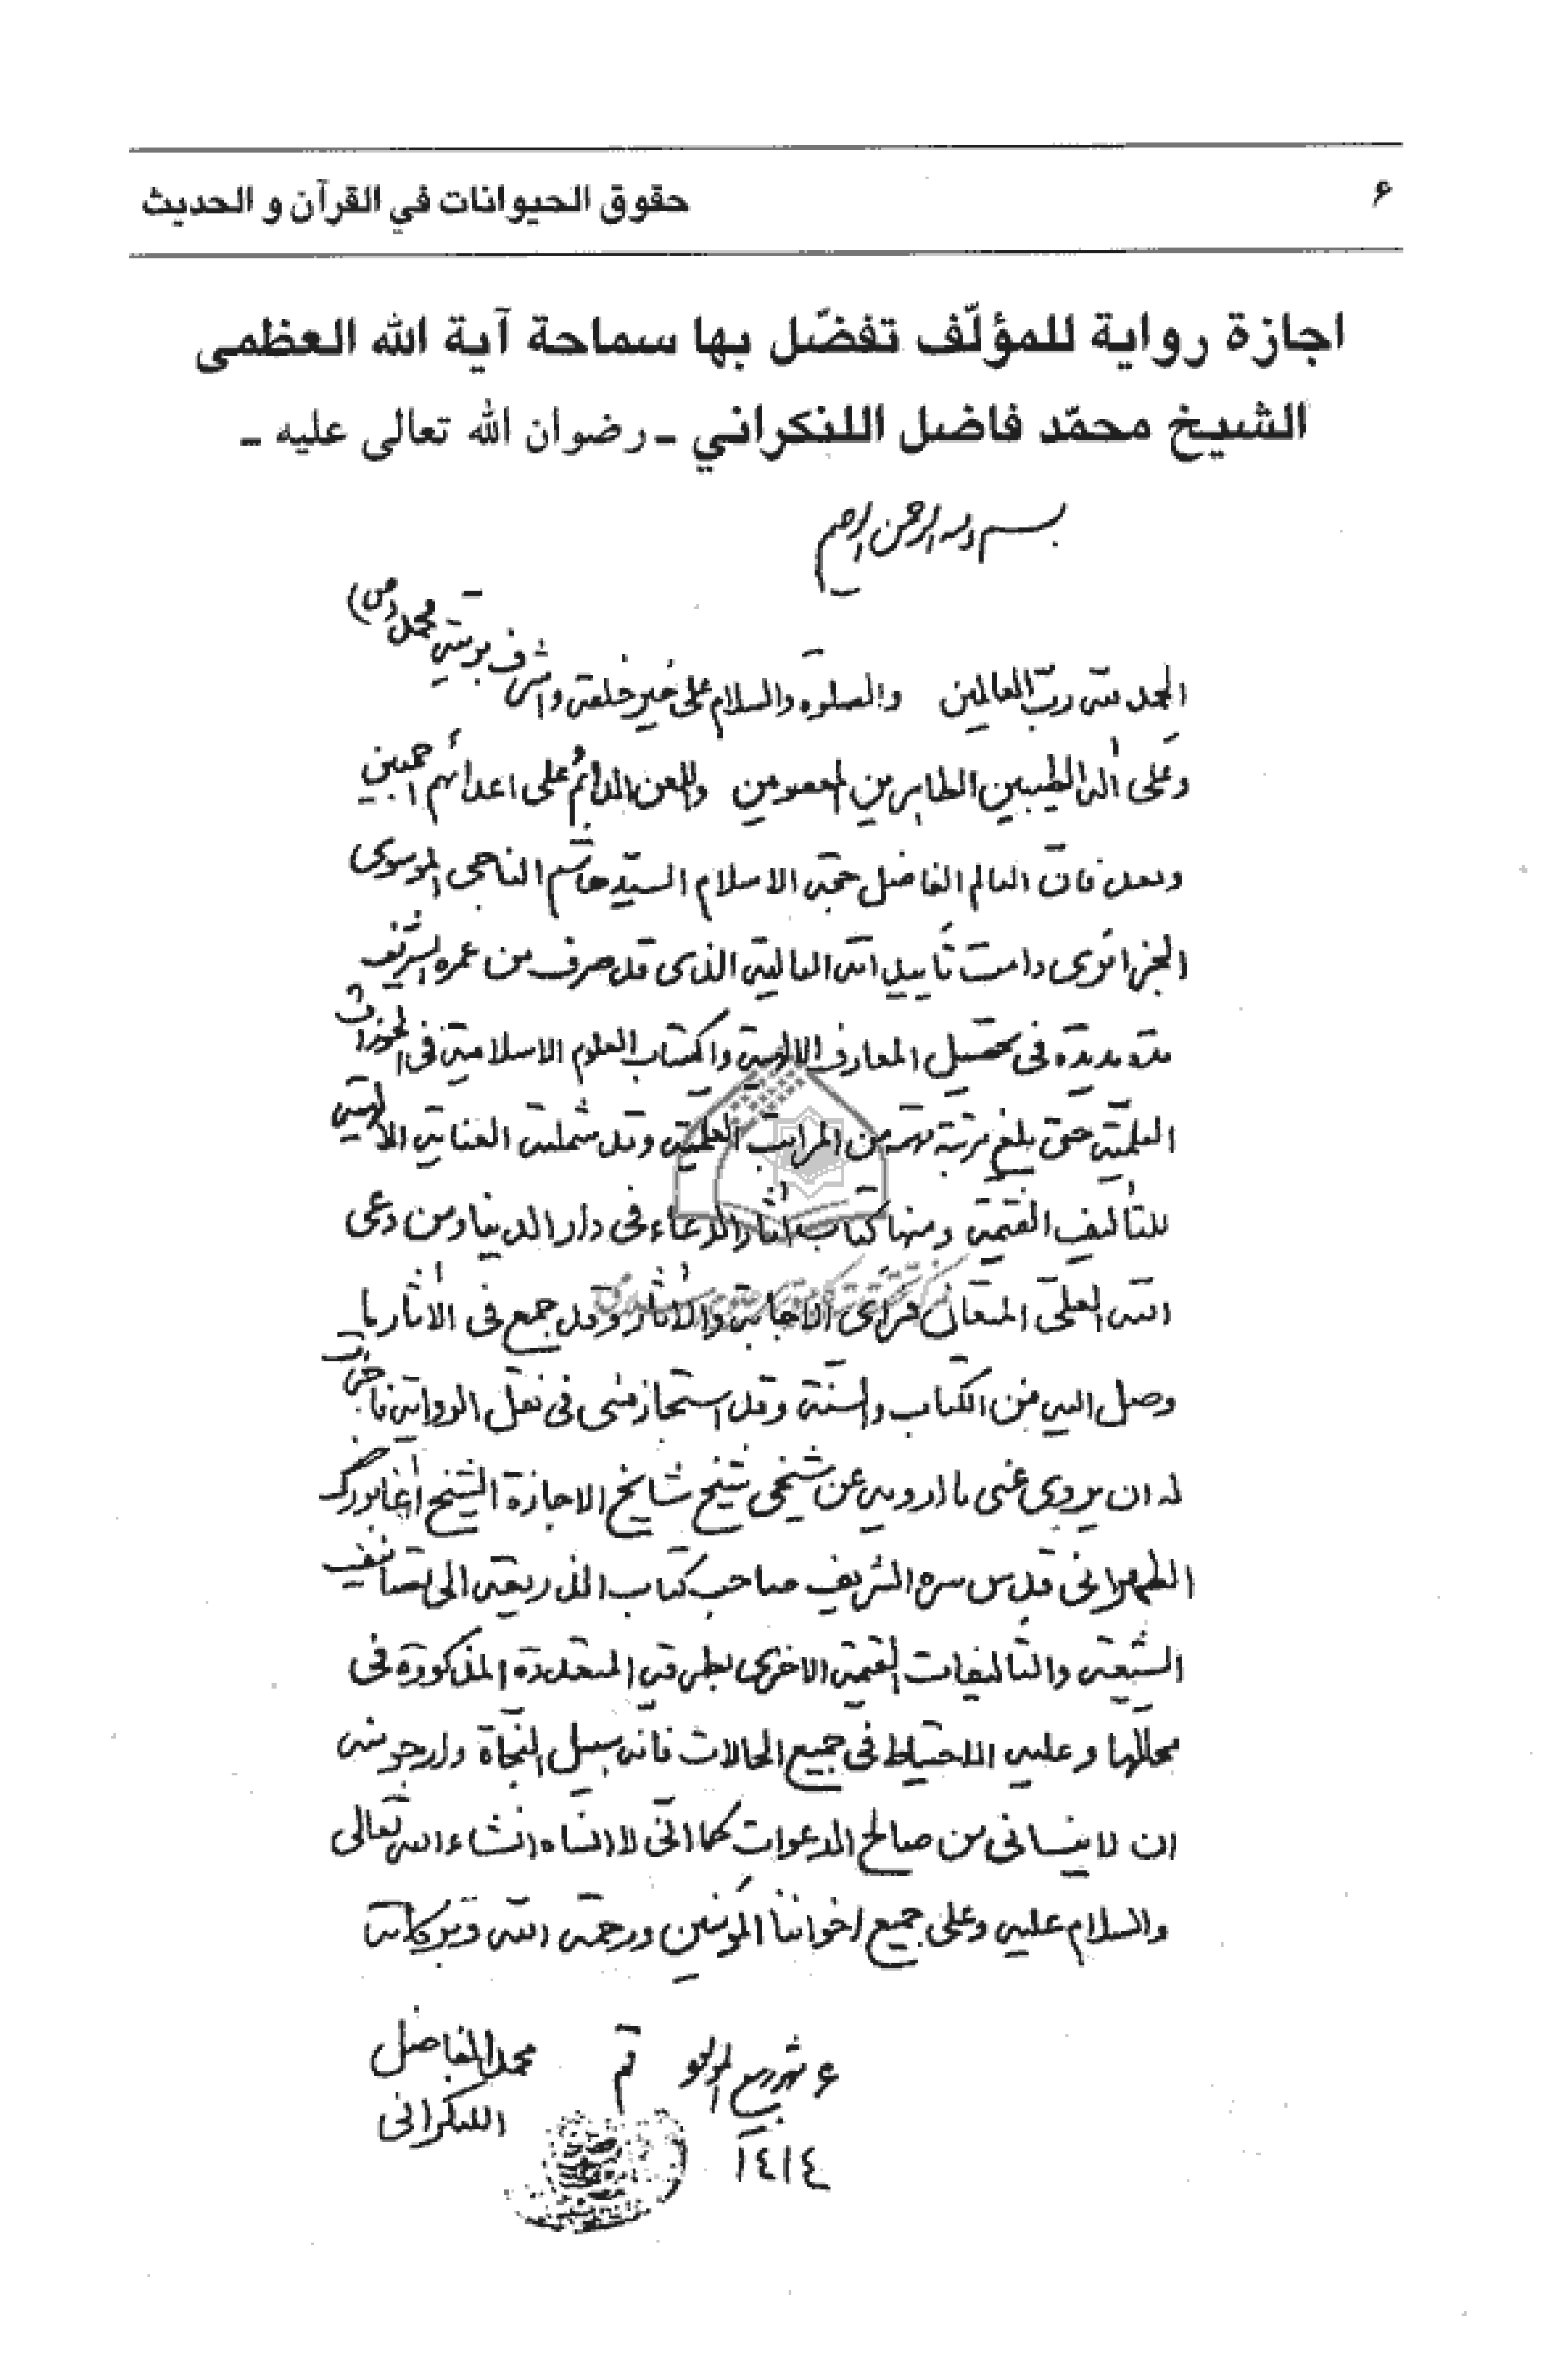 ۶
حقوق الحيوانات في القرآن و الحديث
اجازة رواية للمؤلّف تفضّل بها سماحة آية الله العظمى
الشيخ محمّد فاضل اللنكراني ـ رضوان الله تعالى عليه ـ
بسم الله الرحمن الرحيم
الحمد لله رب العالمين والصلوة والسلام على خير خلقه واشرف بريته محمد (ص)
وعلى آله الطيبين الطاهرين المعصومين واللعن الدائم على اعدائهم اجمعين
وبعد فان العالم الفاضل حجة الاسلام السيد هاشم الناجى الموسوى
الجزائرى دامت تأييداته العالية الذى قد صرف من عمره الشريف
مدة مديدة فى تحصيل المعارف الالهية واكتساب العلوم الاسلامية فى الحوزات
العلمية حتى بلغ مرتبة من المراتب العلمية وقد شملته العناية الالهية
للتأليف القيمة ومنها كتاب آثار الدعاء فى دار الدنيا ومن دعى
الله العلى المتعال فرأى الاجابة والآثار وقد جمع فى الآثار ما
وصل اليه من الكتاب والسنة وقد استجاز منى فى نقل الرواية فاجزت
له ان يروى عنى ما ارويه عن شيخى شيخ مشايخ الاجازة الشيخ آغا بزرگ
الطهرانى قدس سره الشريف صاحب كتاب الذريعة الى تصانيف
الشيعة والتأليفات القيمة الاخرى بطرقه المتعددة المذكورة فى
محالها وعليه الاحتياط فى جميع الحالات فانه سبيل النجاة وارجو منه
ان لا ينسانى من صالح الدعوات كما انى لا انساه انشاء الله تعالى
والسلام عليه وعلى جميع اخواننا المؤمنين ورحمة الله وبركاته
۶ شهر ربيع المولود قم محمد الفاضل
١٤١٤ اللنكرانى